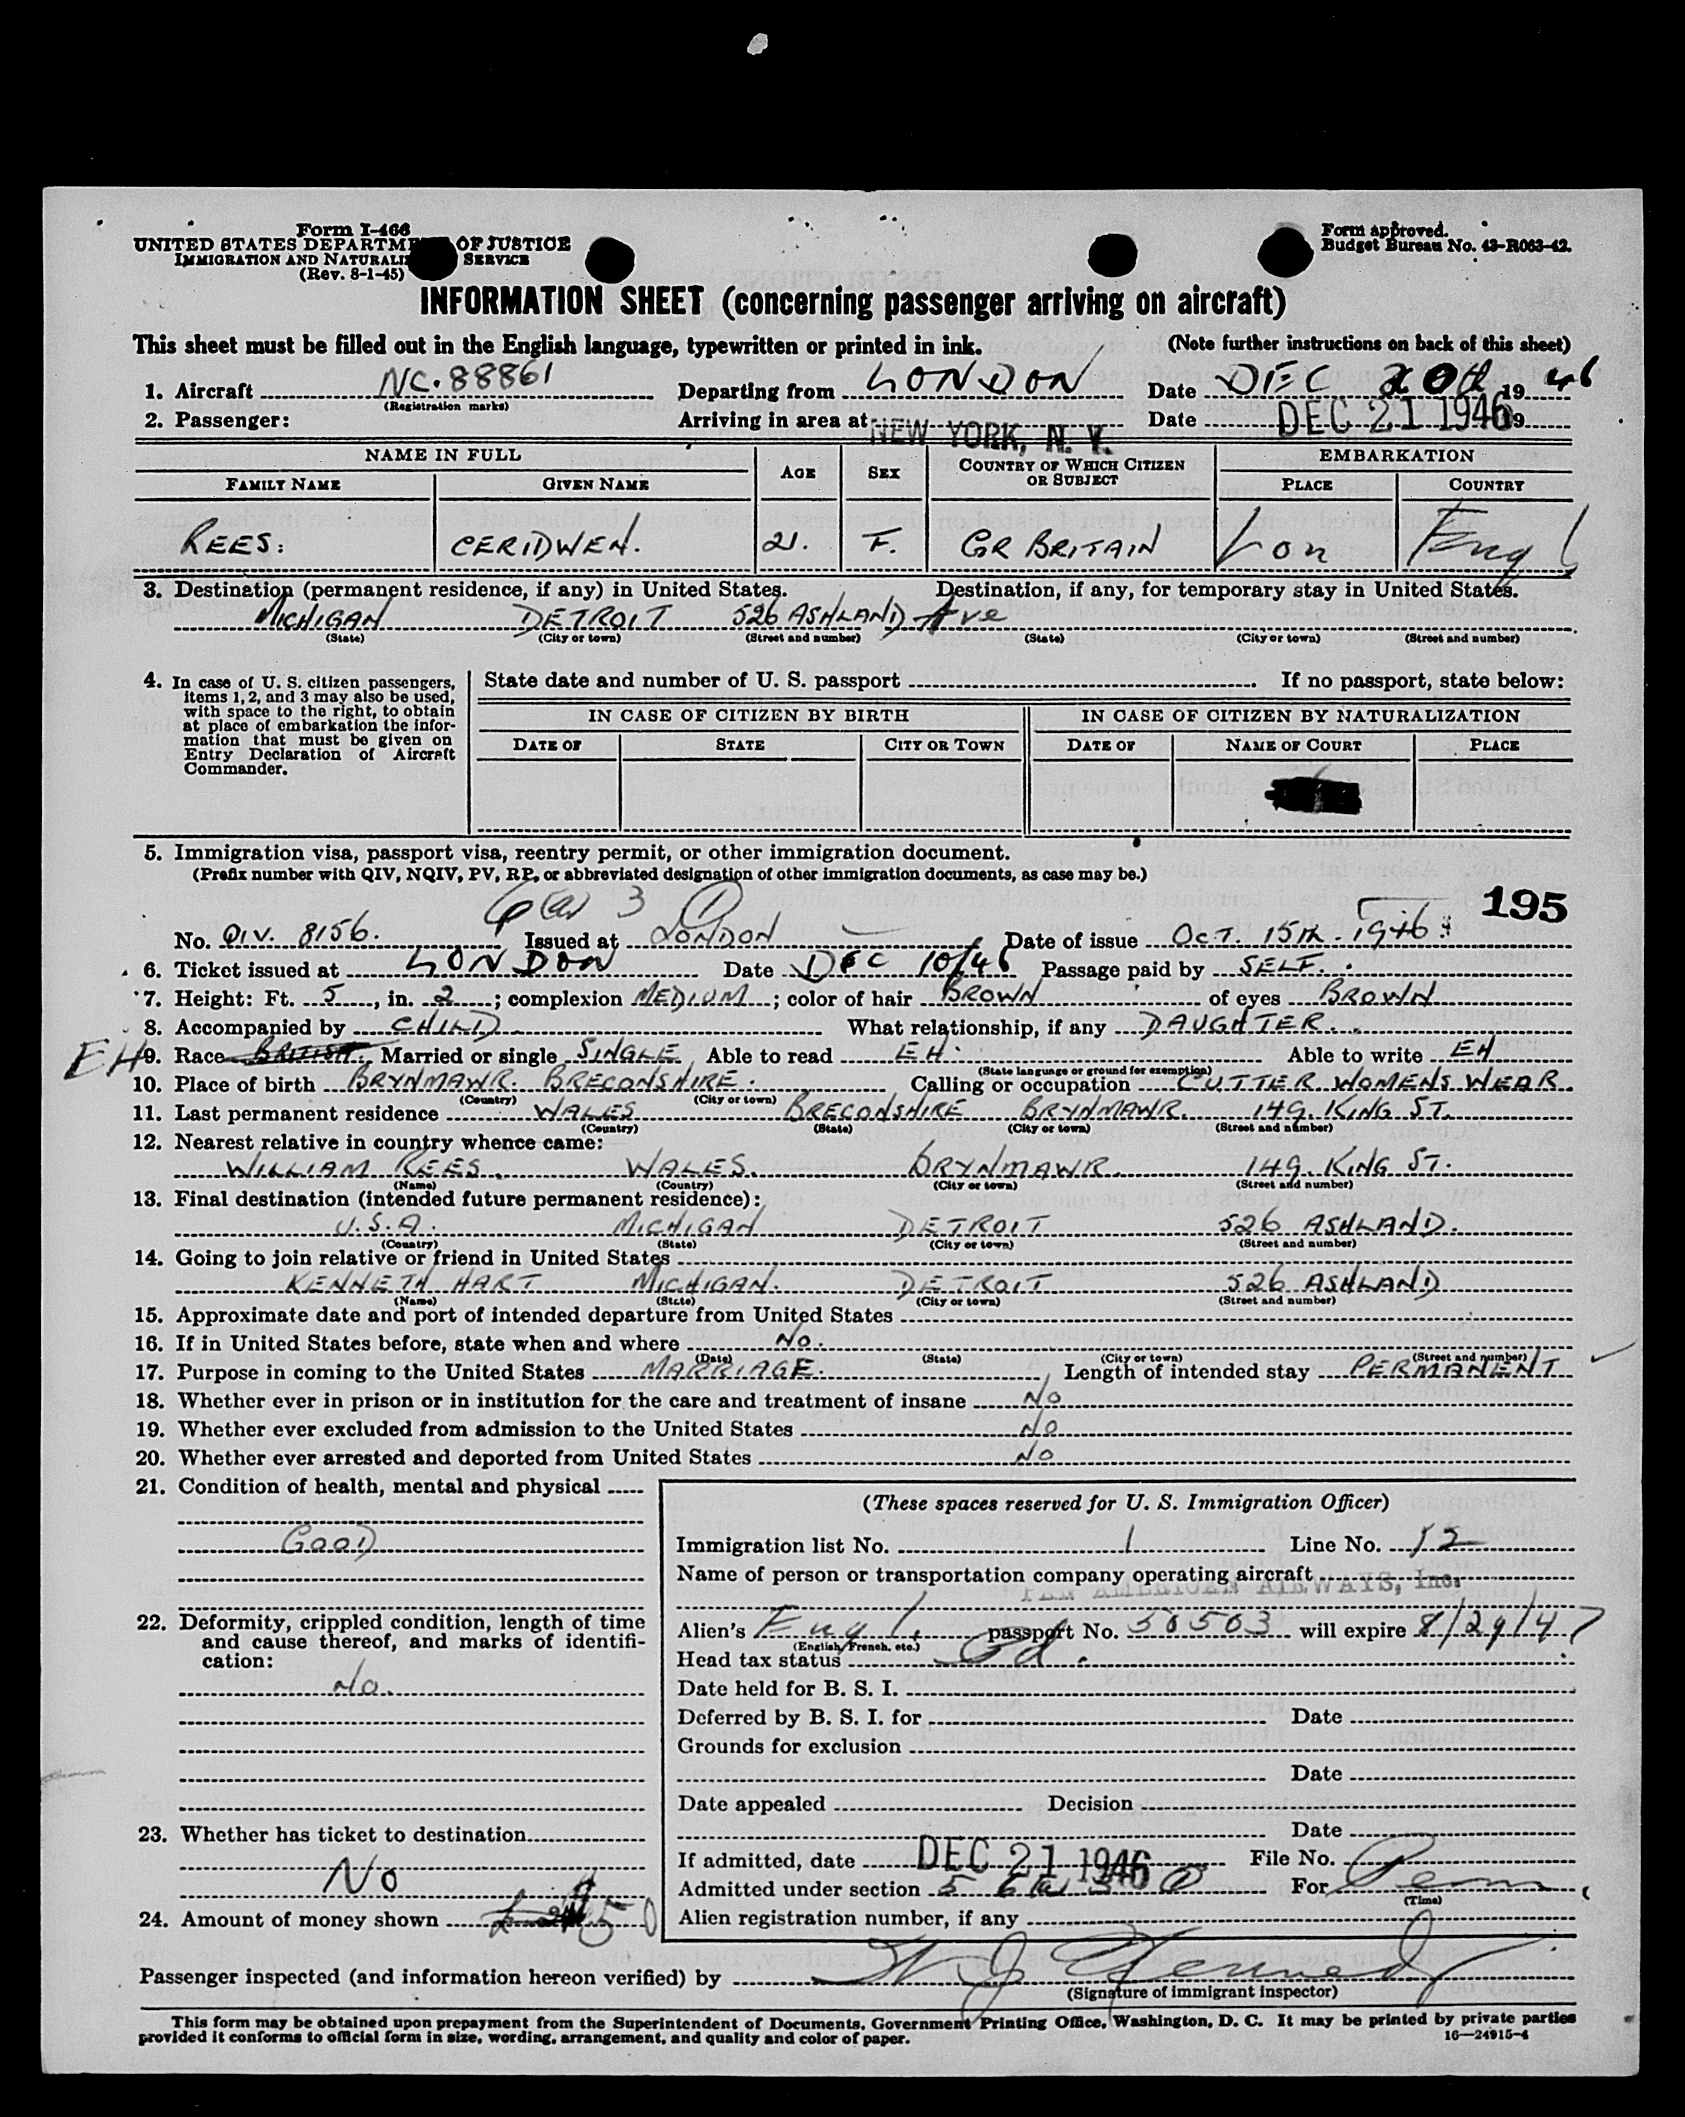 Form I-466
UNITED STATES DEPARTME OF JUSTICE
IMMIGRATION AND NATURALI SERVICE
(Rev. 8-1-45)
Form approved.
Budget Bureau No. 43-R063-42.
INFORMATION SHEET (concerning passenger arriving on aircraft)
This sheet must be filled out in the English language, typewritten or printed in ink. (Note further instructions on back of this sheet)
1. Aircraft NC. 88861 Departing from LONDON Date DEC 20th 1946
(Registration marks)
2. Passenger: Arriving in area at NEW YORK, N. Y. Date DEC 21 1946 19
NAME IN FULL AGE SEX COUNTRY OF WHICH CITIZEN OR SUBJECT EMBARKATION
FAMILY NAME GIVEN NAME PLACE COUNTRY
REES: CERIDWEN. 21. F. GR BRITAIN Lon Engl
3. Destination (permanent residence, if any) in United States. Destination, if any, for temporary stay in United States.
MICHIGAN DETROIT 526 ASHLAND Ave
(State) (City or town) (Street and number) (State) (City or town) (Street and number)
4. In case of U. S. citizen passengers, items 1, 2, and 3 may also be used, with space to the right, to obtain at place of embarkation the information that must be given on Entry Declaration of Aircraft Commander.
State date and number of U. S. passport . If no passport, state below:
IN CASE OF CITIZEN BY BIRTH IN CASE OF CITIZEN BY NATURALIZATION
DATE OF STATE CITY OR TOWN DATE OF NAME OF COURT PLACE
5. Immigration visa, passport visa, reentry permit, or other immigration document.
(Prefix number with QIV, NQIV, PV, RP, or abbreviated designation of other immigration documents, as case may be.)
195
6 (a) 3 (1)
No. QIV. 8156. Issued at LONDON Date of issue OCT. 15th. 1946
6. Ticket issued at LONDON Date DEC 10/46 Passage paid by SELF.
7. Height: Ft. 5, in. 2; complexion MEDIUM; color of hair BROWN of eyes BROWN
8. Accompanied by CHILD What relationship, if any DAUGHTER.
EH 9. Race BRITISH. Married or single SINGLE Able to read EH. Able to write EH
(State language or ground for exemption)
10. Place of birth BRYNMAWR. BRECONSHIRE. Calling or occupation CUTTER WOMENS WEAR.
(Country) (City or town)
11. Last permanent residence WALES BRECONSHIRE BRYNMAWR. 149. KING ST.
(Country) (State) (City or town) (Street and number)
12. Nearest relative in country whence came:
WILLIAM REES. WALES. BRYNMAWR. 149. KING ST.
(Name) (Country) (City or town) (Street and number)
13. Final destination (intended future permanent residence):
U.S.A. MICHIGAN DETROIT 526 ASHLAND.
(Country) (State) (City or town) (Street and number)
14. Going to join relative or friend in United States
KENNETH HART MICHIGAN. DETROIT 526 ASHLAND
(Name) (State) (City or town) (Street and number)
15. Approximate date and port of intended departure from United States
16. If in United States before, state when and where No.
(Date) (State) (City or town) (Street and number)
17. Purpose in coming to the United States MARRIAGE. Length of intended stay PERMANENT
18. Whether ever in prison or in institution for the care and treatment of insane NO
19. Whether ever excluded from admission to the United States NO
20. Whether ever arrested and deported from United States NO
21. Condition of health, mental and physical
GOOD
22. Deformity, crippled condition, length of time and cause thereof, and marks of identification:
No.
23. Whether has ticket to destination
No
24. Amount of money shown $50
(These spaces reserved for U. S. Immigration Officer)
Immigration list No. 1 Line No. 12
Name of person or transportation company operating aircraft
PAN AMERICAN AIRWAYS, Inc.
Alien's Engl. passport No. 50503 will expire 8/29/47
(English, French, etc.)
Head tax status Pd.
Date held for B. S. I.
Deferred by B. S. I. for Date
Grounds for exclusion
Date
Date appealed Decision
Date
If admitted, date DEC 21 1946 File No.
Admitted under section 5 6 (a) 3 (1) For Perm.
(Time)
Alien registration number, if any
Passenger inspected (and information hereon verified) by W J Kennedy
(Signature of immigrant inspector)
This form may be obtained upon prepayment from the Superintendent of Documents, Government Printing Office, Washington, D. C. It may be printed by private parties
provided it conforms to official form in size, wording, arrangement, and quality and color of paper. 16—24915-4